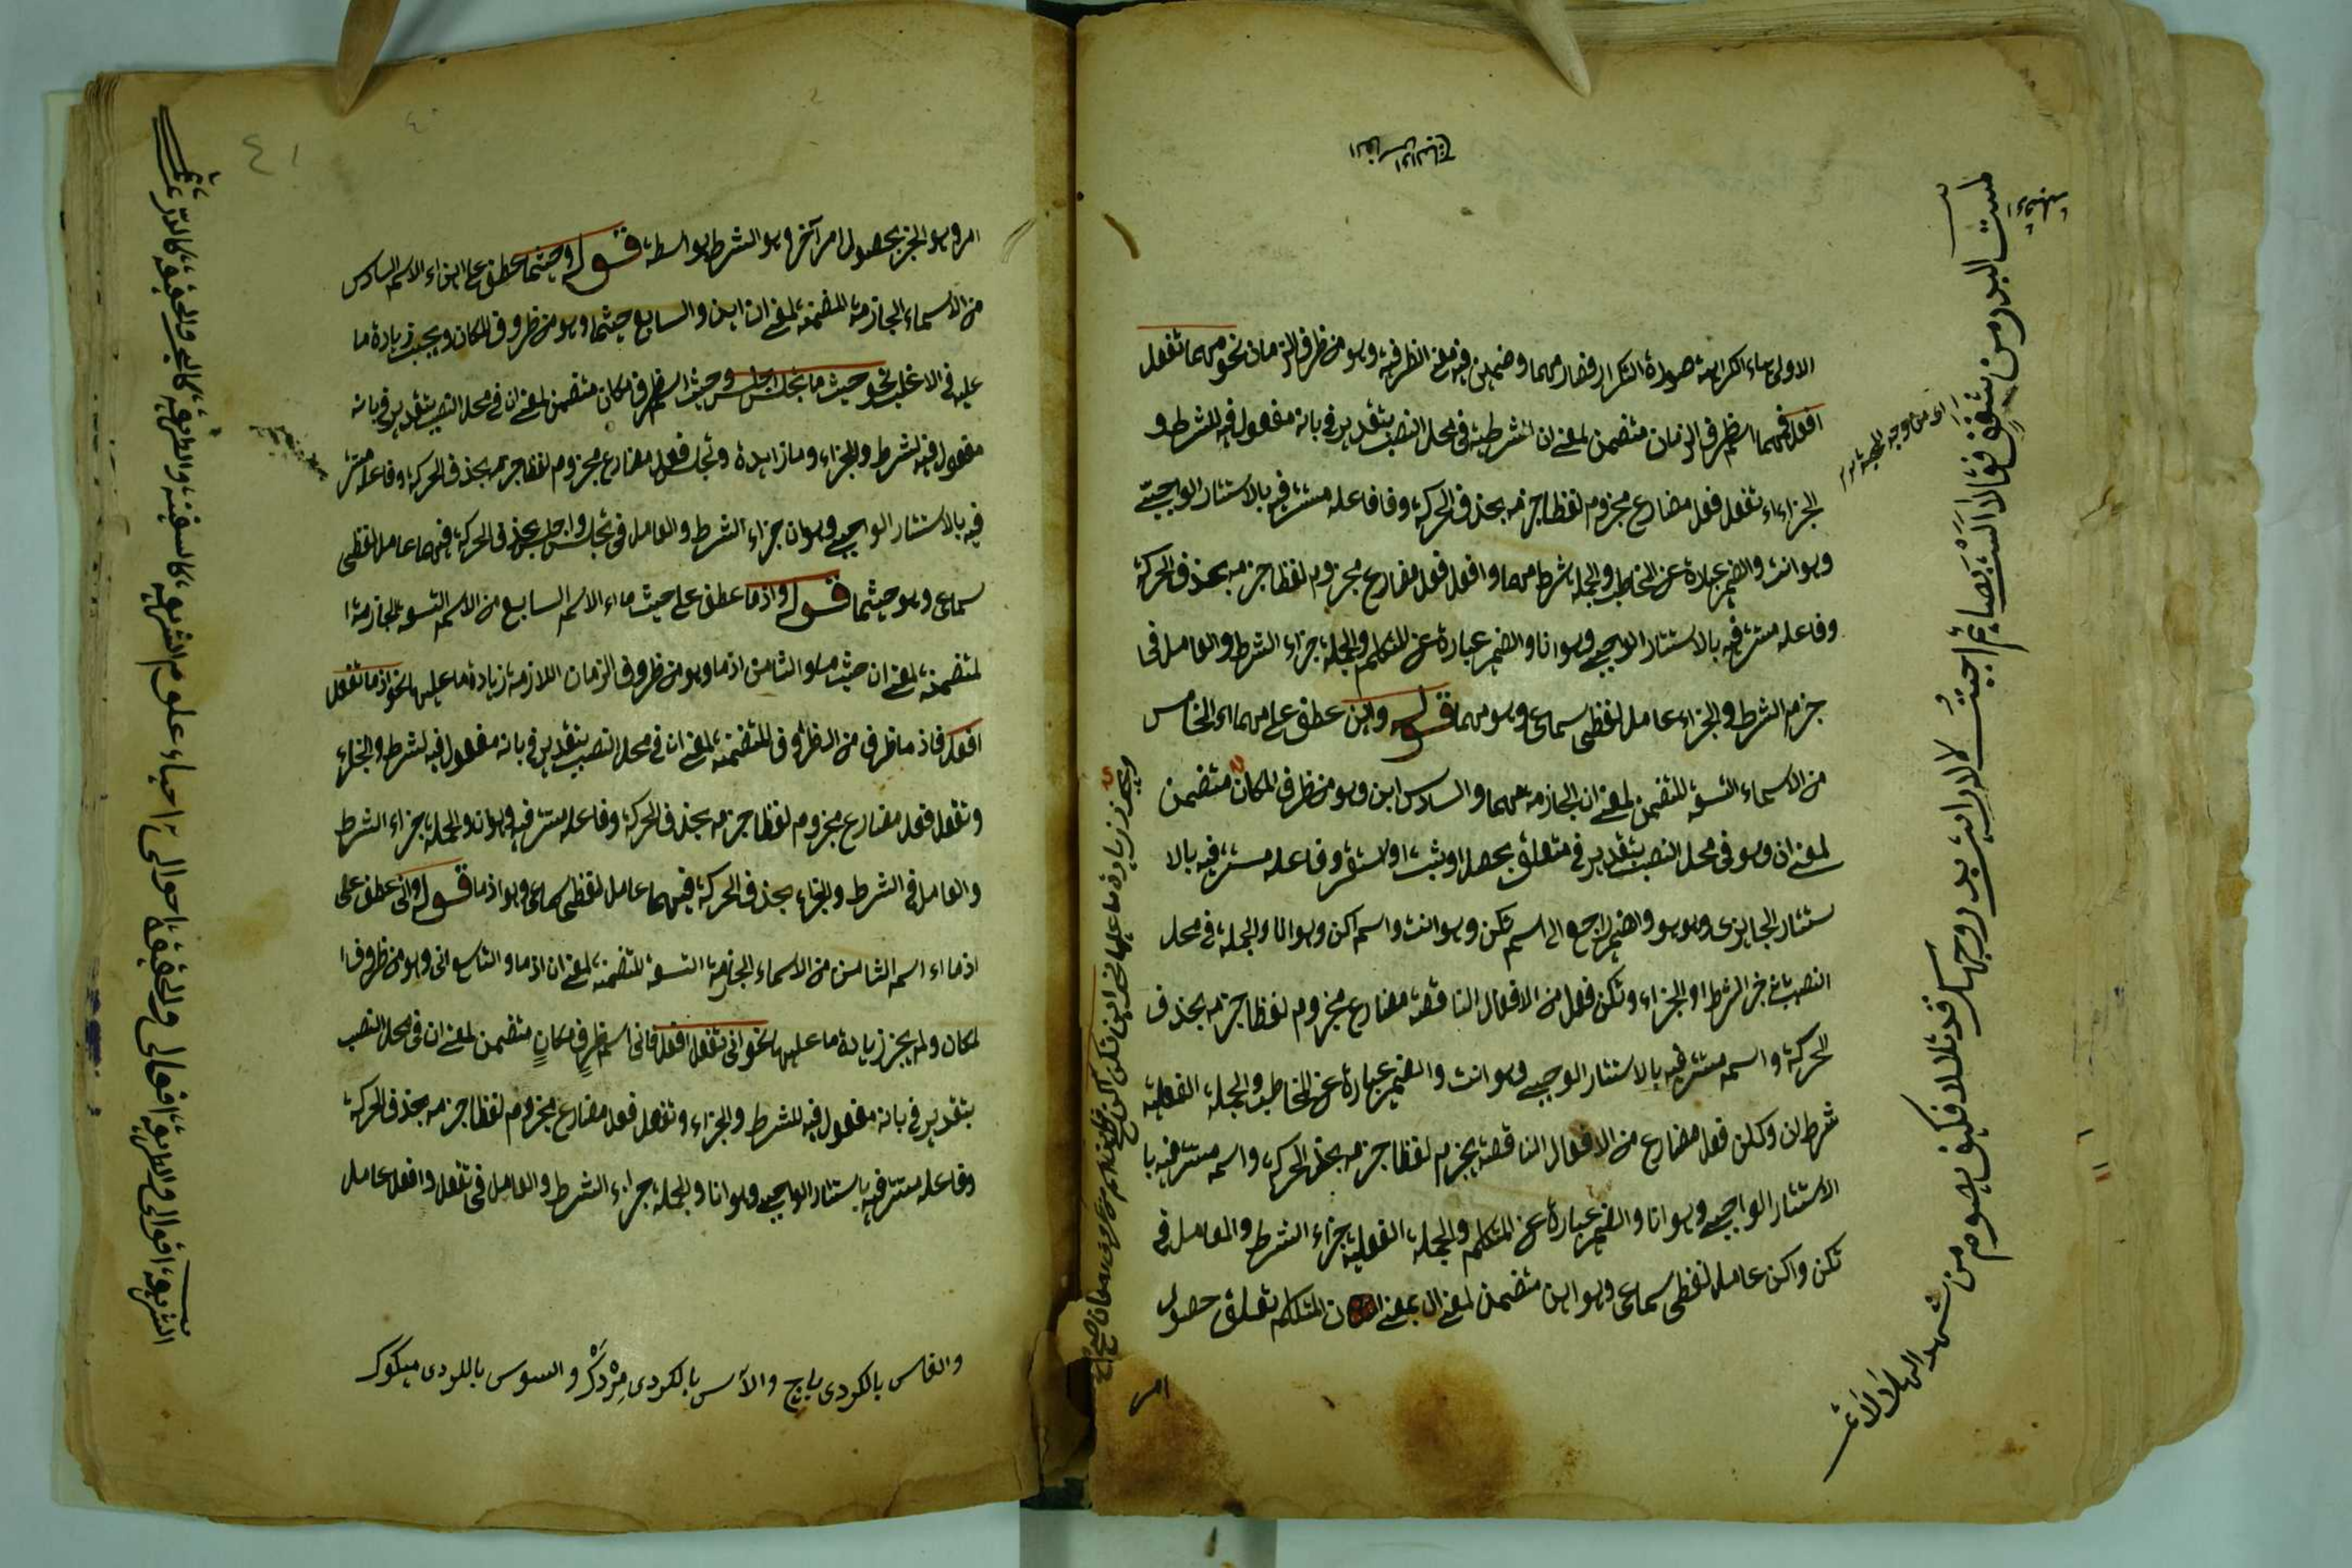 الاولى هاء الكراهة صورة التكرار فصار مهما وضمين فيه معنى الظرفية وهو من ظرف الزمان نحو مهما تفعل
افعل فمهما اسم ظرف الزمان متضمن لمعنى ان الشرطية في محل النصب بتقدير في بانه مفعول فيه للشرط و
الجزاء تفعل فعل مضارع مجزوم لفظا جزمه بحذف الحركة وفاعله مستتر فيه بالاستتار الواجبي
وهو انت والضمير عبارة عن المخاطب والجملة شرط مهما وافعل فعل مضارع مجزوم لفظا جزمه بحذف الحركة
وفاعله مستتر فيه بالاستتار الوجبي وهو انا والضمير عبارة عن المتكلم والجملة جزاء الشرط والعامل في
جزم الشرط والجزاء عامل لفظي سماعي وهو مهما قوله واين عطف على مهما اى الخامس
من الاسماء التسعة المتضمن لمعنى ان الجازمة مهما والسادس اين وهو من ظرف المكان متضمن
لمعنى ان وهو في محل النصب بتقدير في متعلق بحصل او ثبت او استقر وفاعله مستتر فيه بالا
ستتار الجايزى وهو هو والضمير راجع الى اسم تكن وهو انت واسم اكن وهو انا والجملة في محل
النصب خبر الشرط او الجزاء وتكن فعل من الافعال الناقصة مضارع مجزوم لفظا جزمه بحذف
الحركة واسمه مستتر فيه بالاستتار الوجبي وهو انت والضمير عبارة عن المخاطب والجملة الفعلية
شرط ان وكن فعل مضارع من الافعال الناقصة بجزم لفظا جزمه بحذف الحركة واسمه مستتر فيه با
الاستتار الواجبي وهو انا والضمير عبارة عن المتكلم والجملة الفعلية جزاء الشرط والعامل في
تكن واكن عامل لفظي سماعي وهو اين متضمن لمعنى ان بمعنى ان المتكلم تعلق حصول
امر
ويجوز زيادة ما عليها نحو اين تكن اكن
لميت البدر من شفق فقالا الست بصايم اجبت لا لا رايت بدر وجهك قد تلالا فكيف يصوم من شهد الهلالا
امر وهو الجزء بحصول امر آخر وهو الشرط بواسطه قوله وحيثما عطف على اين اى الاسم السادس
من الاسماء الجازمة المتضمنة لمعنى ان اين والسابع حيثما وهو من ظروف المكان ويجب زيادة ما
عليه في الاغلب نحو حيث ما تجلس اجلس وحيث اسم ظرف مكان متضمن لمعنى ان في محل النصب بتقدير في بانه
مفعول فيه لشرط والجزاء وما زايدة وتجلس فعل مضارع مجزوم لفظا جزمه بحذف الحركة وفاعله مستتر
فيه بالاستتار الواجبي وهو ان جزاء الشرط والعامل في تجلس واجلس بحذف الحركة فيهما عامل لفظي
سماعي وهو حيثما قوله واذما عطف على حيث ما اى الاسم السابع من الاسم التسعة الجازمة ا
لمتضمنة لمعنى ان حيث ما والثامن اذما وهو من ظروف الزمان اللازمة زيادة ما عليها نحو اذما تفعل
افعل فاذ ما ظرف من الظروف المتضمنة لمعنى ان في محل النصب بتقدير في بانه مفعول فيه لشرط والجزاء
وتفعل فعل مضارع مجزوم لفظا جزمه بحذف الحركة وفاعله مستتر فيه وهو انت والجملة جزاء الشرط
والعامل في الشرط والجزاء بحذف الحركة فيهما عامل لفظي سماعي وهو اذما قوله وانى عطف على
اذما اى اسم الثامن من الاسماء الجازمة التسعة المتضمنة لمعنى ان اذما والتاسع انى وهو من ظروف ا
لمكان ولم يجز زيادة ما عليها نحو انى تفعل افعل فانى اسم ظرف مكان متضمن لمعنى ان في محل النصب
بتقدير في بانه مفعول فيه للشرط والجزاء وتفعل فعل مضارع مجزوم لفظا جزمه بحذف الحركة
وفاعله مستتر فيه باستتار الوجبي وهو انا والجملة جزاء الشرط والعامل في تفعل وافعل عامل
والفاس بالكردى باج والآس بالكردى مزدك والسوس باللردى ميكوك
الشريعة اقوالى والطريقة افعالى والحقيقة احوالى احياء علوم الشريعة كالسفينة والطريقة كالبحر والحقيقة كالدر
٤١